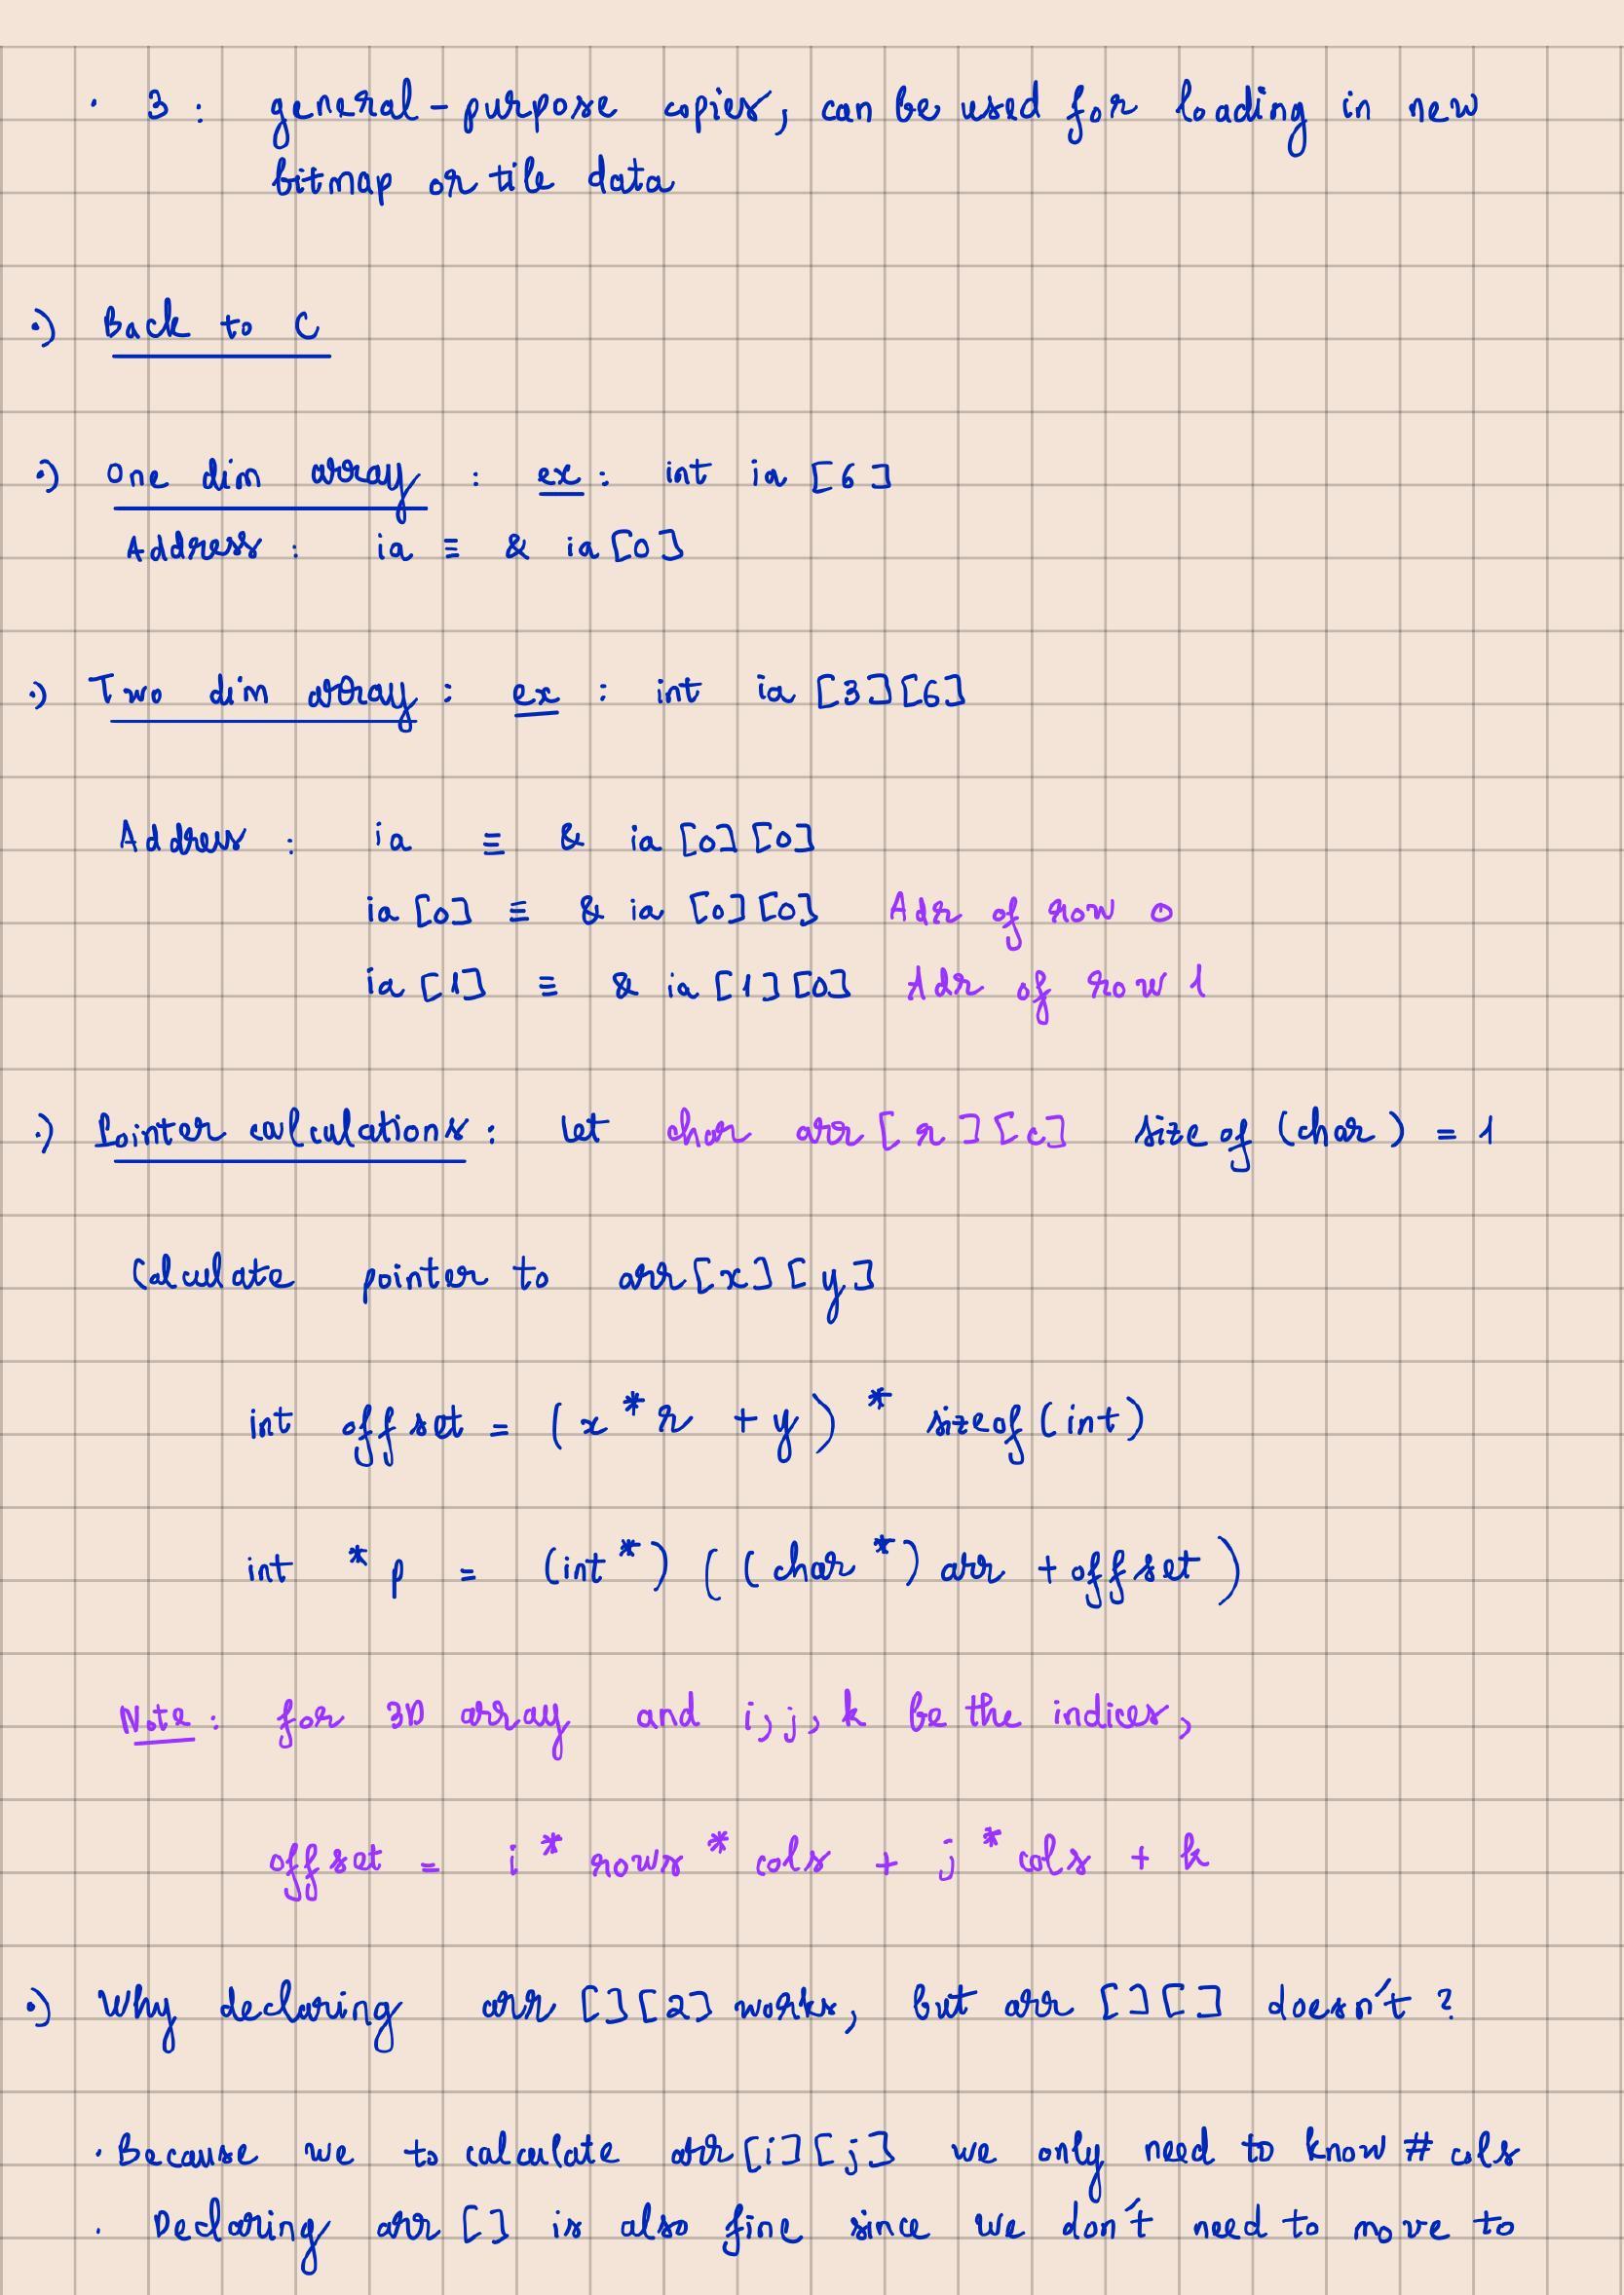 · 3 : general-purpose copies, can be used for loading in new
bitmap or tile data
·) Back to C
·) One dim array : ex : int ia [6]
Address : ia ≡ & ia[0]
·) Two dim array : ex : int ia [3][6]
Address : ia ≡ & ia [0][0]
ia [0] ≡ & ia [0][0] Adr of row 0
ia [1] ≡ & ia [1][0] Adr of row 1
·) Pointer calculations : Let char arr[r][c] sizeof (char) = 1
Calculate pointer to arr[x][y]
int offset = (x * r + y) * sizeof(int)
int * p = (int *) ((char *) arr + offset)
Note : for 3D array and i, j, k be the indices,
offset = i * rows * cols + j * cols + k
·) Why declaring arr [][2] works, but arr [][] doesn't ?
· Because we to calculate arr[i][j] we only need to know # cols
· Declaring arr [] is also fine since we don't need to move to